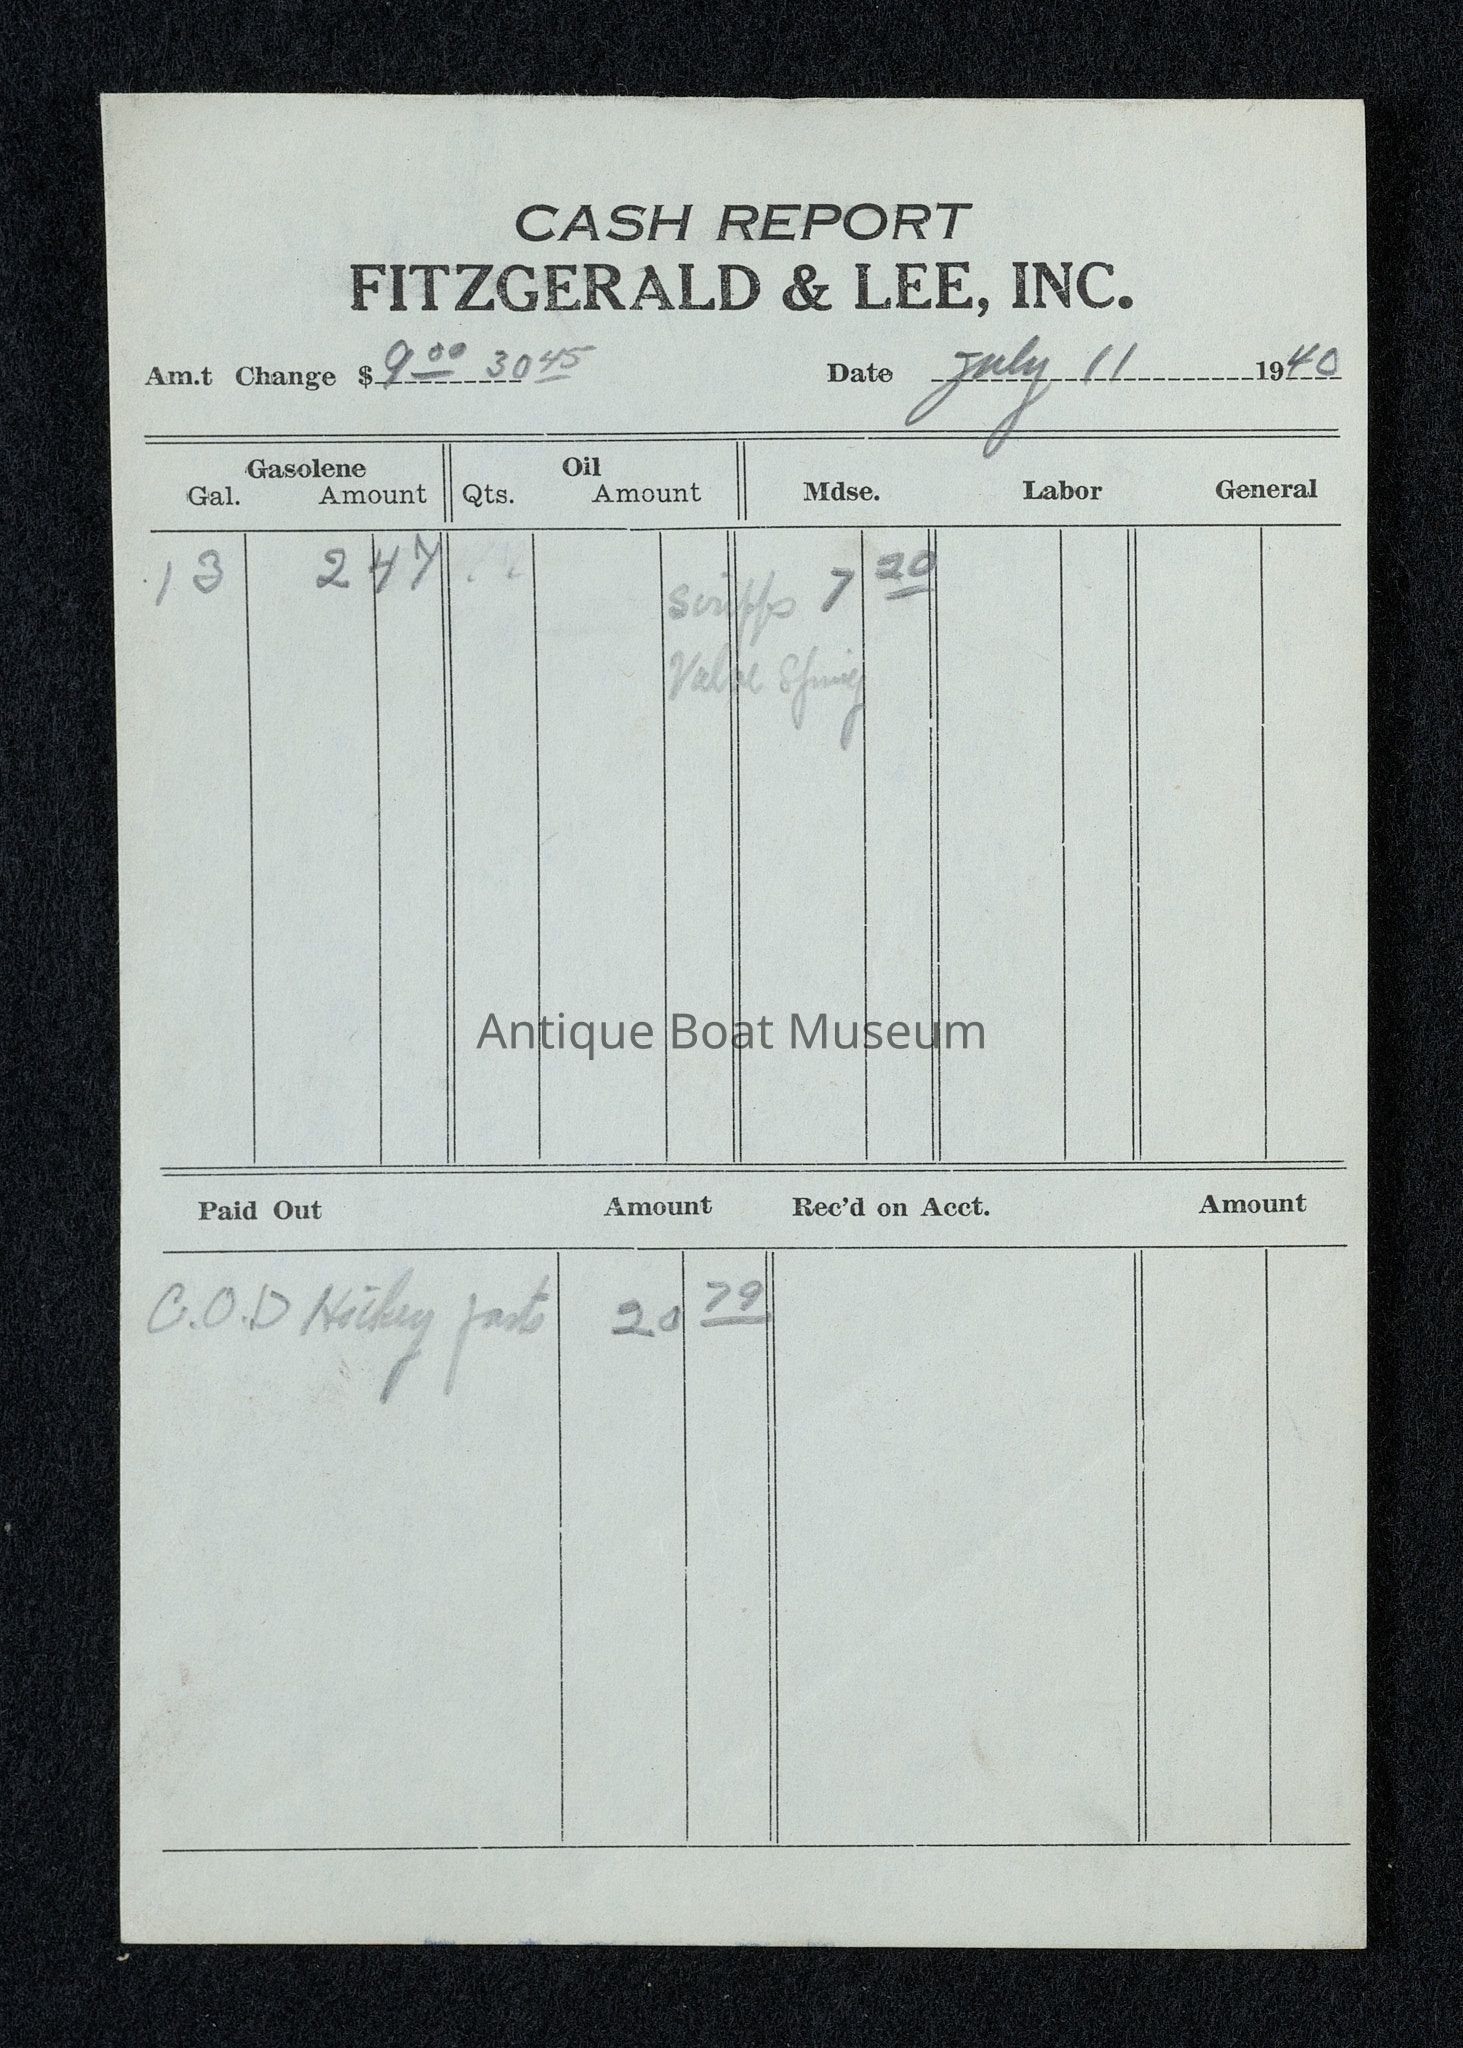 CASH REPORT
FITZGERALD & LEE, INC.
Am.t Change $ 9 00 30 45 Date July 11 1940
Gasolene Oil
Gal. Amount Qts. Amount Mdse. Labor General
13 2 47 7 20
Scripps
Valve Spring
Antique Boat Museum
Paid Out Amount Rec'd on Acct. Amount
C.O.D parts 20 79